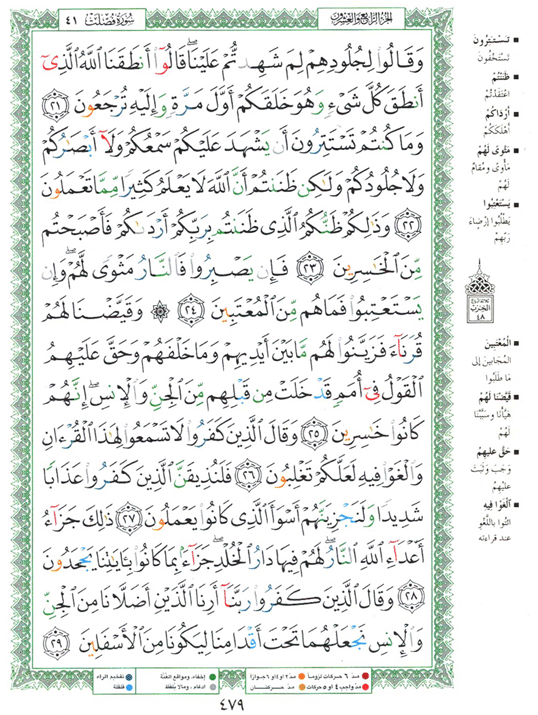 سُورَةُ فُصِّلَتْ ٤١
الجزء الرابع والعشرون
وَقَالُوا۟ لِجُلُودِهِمْ لِمَ شَهِدتُّمْ عَلَيْنَا ۖ قَالُوٓا۟ أَنطَقَنَا ٱللَّهُ ٱلَّذِىٓ
أَنطَقَ كُلَّ شَىْءٍ وَهُوَ خَلَقَكُمْ أَوَّلَ مَرَّةٍ وَإِلَيْهِ تُرْجَعُونَ ٢١
وَمَا كُنتُمْ تَسْتَتِرُونَ أَن يَشْهَدَ عَلَيْكُمْ سَمْعُكُمْ وَلَآ أَبْصَـٰرُكُمْ
وَلَا جُلُودُكُمْ وَلَـٰكِن ظَنَنتُمْ أَنَّ ٱللَّهَ لَا يَعْلَمُ كَثِيرًا مِّمَّا تَعْمَلُونَ
٢٢ وَذَٰلِكُمْ ظَنُّكُمُ ٱلَّذِى ظَنَنتُم بِرَبِّكُمْ أَرْدَىٰكُمْ فَأَصْبَحْتُم
مِّنَ ٱلْخَـٰسِرِينَ ٢٣ فَإِن يَصْبِرُوا۟ فَٱلنَّارُ مَثْوًى لَّهُمْ ۖ وَإِن
يَسْتَعْتِبُوا۟ فَمَا هُم مِّنَ ٱلْمُعْتَبِينَ ٢٤ ۞ وَقَيَّضْنَا لَهُمْ
قُرَنَآءَ فَزَيَّنُوا۟ لَهُم مَّا بَيْنَ أَيْدِيهِمْ وَمَا خَلْفَهُمْ وَحَقَّ عَلَيْهِمُ
ٱلْقَوْلُ فِىٓ أُمَمٍ قَدْ خَلَتْ مِن قَبْلِهِم مِّنَ ٱلْجِنِّ وَٱلْإِنسِ ۖ إِنَّهُمْ
كَانُوا۟ خَـٰسِرِينَ ٢٥ وَقَالَ ٱلَّذِينَ كَفَرُوا۟ لَا تَسْمَعُوا۟ لِهَـٰذَا ٱلْقُرْءَانِ
وَٱلْغَوْا۟ فِيهِ لَعَلَّكُمْ تَغْلِبُونَ ٢٦ فَلَنُذِيقَنَّ ٱلَّذِينَ كَفَرُوا۟ عَذَابًا
شَدِيدًا وَلَنَجْزِيَنَّهُمْ أَسْوَأَ ٱلَّذِى كَانُوا۟ يَعْمَلُونَ ٢٧ ذَٰلِكَ جَزَآءُ
أَعْدَآءِ ٱللَّهِ ٱلنَّارُ ۖ لَهُمْ فِيهَا دَارُ ٱلْخُلْدِ ۖ جَزَآءًۢ بِمَا كَانُوا۟ بِـَٔايَـٰتِنَا يَجْحَدُونَ
٢٨ وَقَالَ ٱلَّذِينَ كَفَرُوا۟ رَبَّنَآ أَرِنَا ٱلَّذَيْنِ أَضَلَّانَا مِنَ ٱلْجِنِّ
وَٱلْإِنسِ نَجْعَلْهُمَا تَحْتَ أَقْدَامِنَا لِيَكُونَا مِنَ ٱلْأَسْفَلِينَ ٢٩
تَسْتَتِرُونَ
تَسْتَخْفُونَ
ظَنَنْتُمْ
اعْتَقَدْتُمْ
أَرْدَاكُمْ
أَهْلَكَكُمْ
مَثْوًى لَهُمْ
مَأْوًى وَمُقَامٌ
لَهُمْ
يَسْتَعْتِبُوا
يَطْلُبُوا إِرْضَاءَ
رَبِّهِم
الحزب
٤٨
الْمُعْتَبِينَ
الْمُجَابِينَ إِلَى
مَا طَلَبُوا
قَيَّضْنَا لَهُمْ
هَيَّأْنَا وَسَبَّبْنَا
لَهُمْ
حَقَّ عَلَيْهِمُ
وَجَبَ وَثَبَتَ
عَلَيْهِمْ
الْغَوْا فِيهِ
ائْتُوا بِاللَّغْوِ
عِنْدَ قِرَاءَتِهِ
مدّ ٦ حركات لزوماً
مدّ ٢ أو ٤ أو ٦ جوازاً
إخفاء، ومواقع الغنّة
تفخيم الراء
مدّ واجب ٤ أو ٥ حركات
مدّ حركتان
ادغام، ومالا يلفظ
قلقلة
٤٧٩